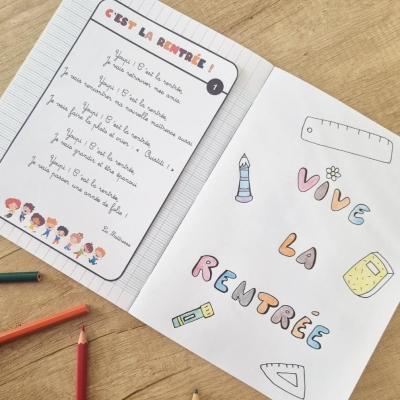 C'EST LA RENTRÉE !
1
Youpi ! C'est la rentrée
Je vais retrouver mes amis
Youpi ! C'est la rentrée
Je vais rencontrer ma nouvelle maîtresse aussi
Youpi ! C'est la rentrée
Je vais faire la photo et crier : « Ouistiti ! »
Youpi ! C'est la rentrée
Je vais grandir et être épanoui
Youpi ! C'est la rentrée
Je vais passer une année de folie !
La Maîtresse
VIVE
LA
RENTRÉE